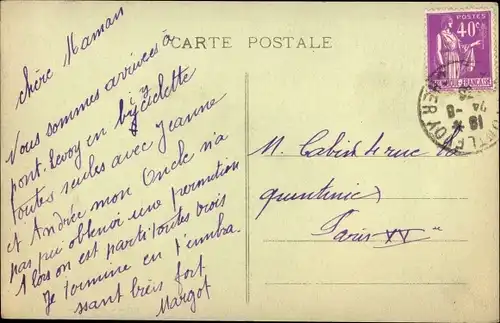 CARTE POSTALE
POSTES
40c
chère Maman
Vous sommes arrivées à
pont-levoy en bicyclette
toutes seules avec Jeanne
et Andrée mon Oncle n'a
pas pu obtenir une permition
Alors on est parti toutes trois
Je termine en t'embra
ssant bien fort
Margot
M. Cabit de rue la
quintinie
Paris XV